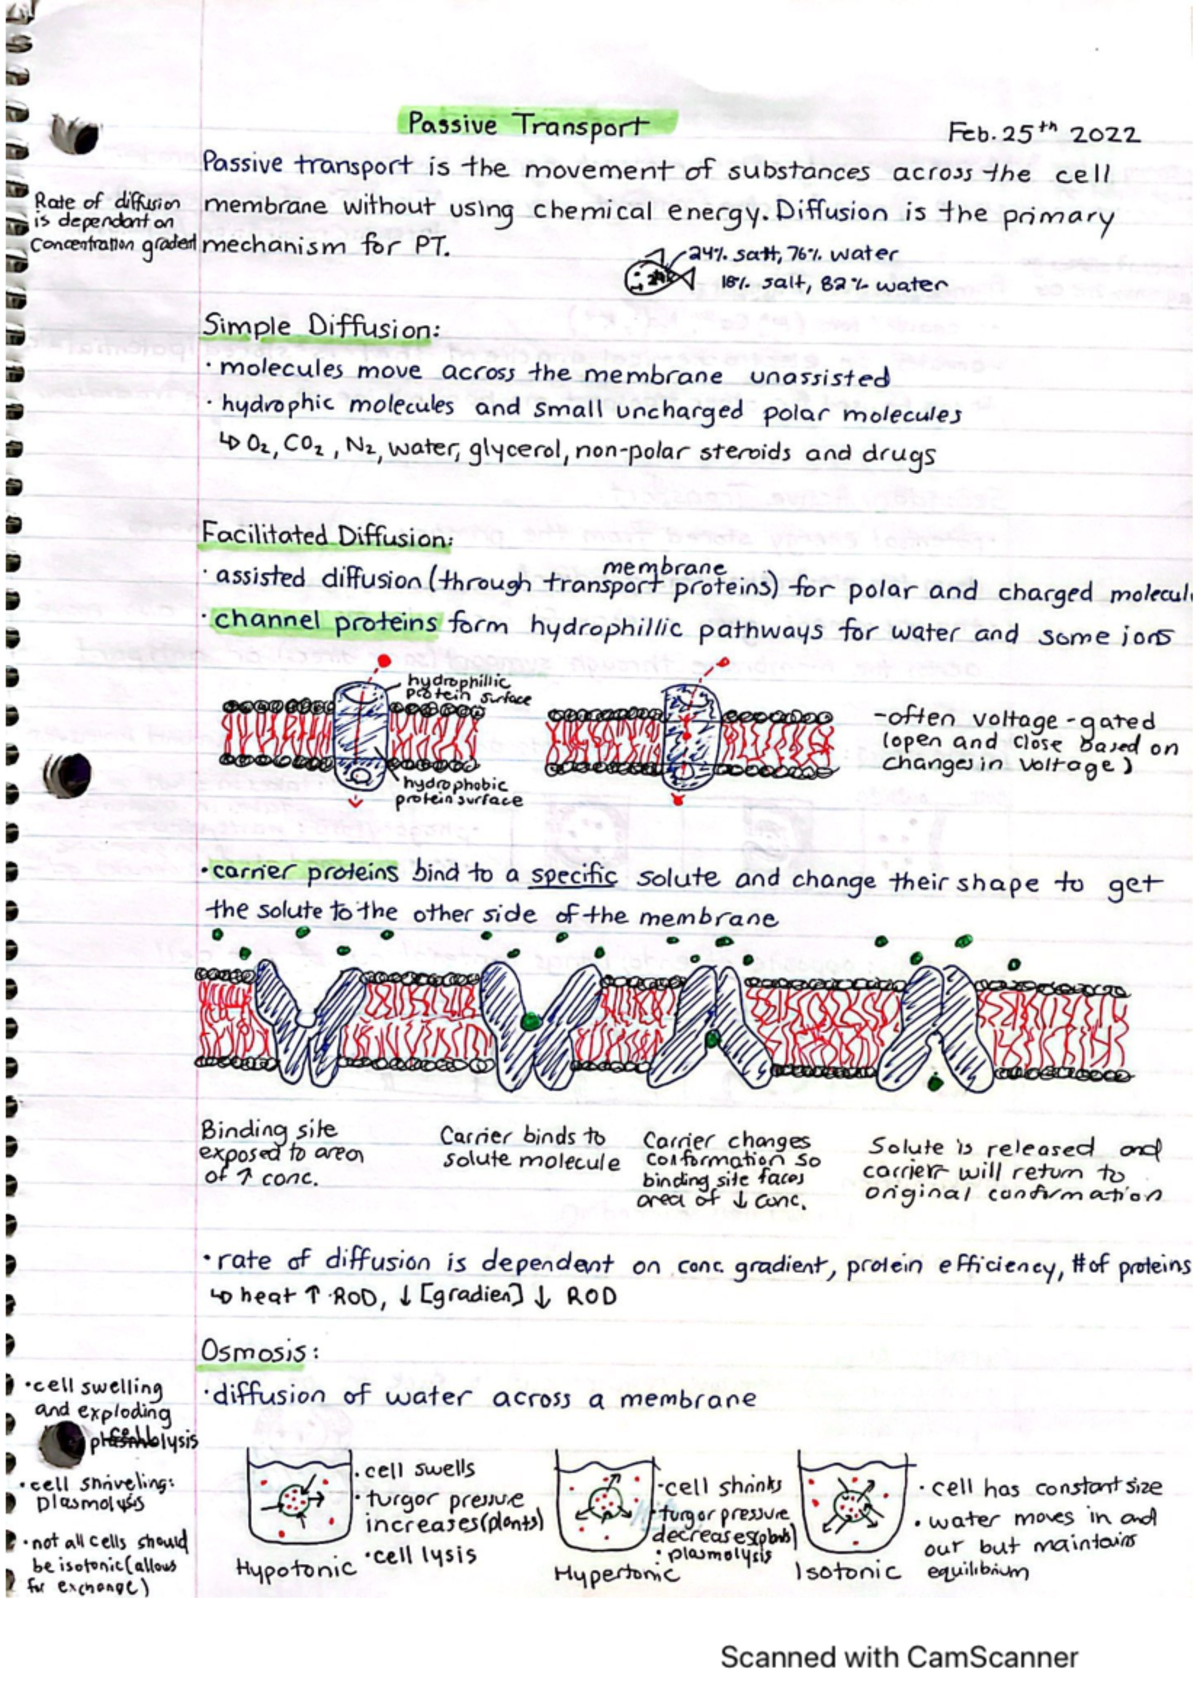 Passive Transport
Feb. 25th 2022
Passive transport is the movement of substances across the cell
membrane without using chemical energy. Diffusion is the primary
mechanism for PT.
Rate of diffusion
is dependant on
Concentration gradent
24% salt, 76% water
18% salt, 82% water
Simple Diffusion:
· molecules move across the membrane unassisted
· hydrophic molecules and small uncharged polar molecules
↳ O₂, CO₂, N₂, water, glycerol, non-polar steroids and drugs
Facilitated Diffusion:
membrane
· assisted diffusion (through transport proteins) for polar and charged molecul
· channel proteins form hydrophillic pathways for water and some ions
hydrophillic
protein surface
hydrophobic
protein surface
-often voltage-gated
(open and close based on
changes in voltage)
· carrier proteins bind to a specific solute and change their shape to get
the solute to the other side of the membrane
Binding site
exposed to area
of ↑ conc.
Carrier binds to
solute molecule
Carrier changes
conformation so
binding site faces
area of ↓ conc.
Solute is released and
carrier will return to
original confirmation
· rate of diffusion is dependent on conc. gradient, protein efficiency, # of proteins
↳ heat ↑ ROD, ↓ [gradien] ↓ ROD
Osmosis:
· diffusion of water across a membrane
· cell swelling
and exploding
lysis
· cell shriveling:
plasmolysis
· not all cells should
be isotonic (allows
for exchange)
· cell swells
· turgor pressure
increases (plants)
· cell lysis
Hypotonic
· cell shrinks
· turgor pressure
decreases (plants)
· plasmolysis
Hypertonic
· cell has constant size
· water moves in and
out but maintains
equilibrium
Isotonic
Scanned with CamScanner